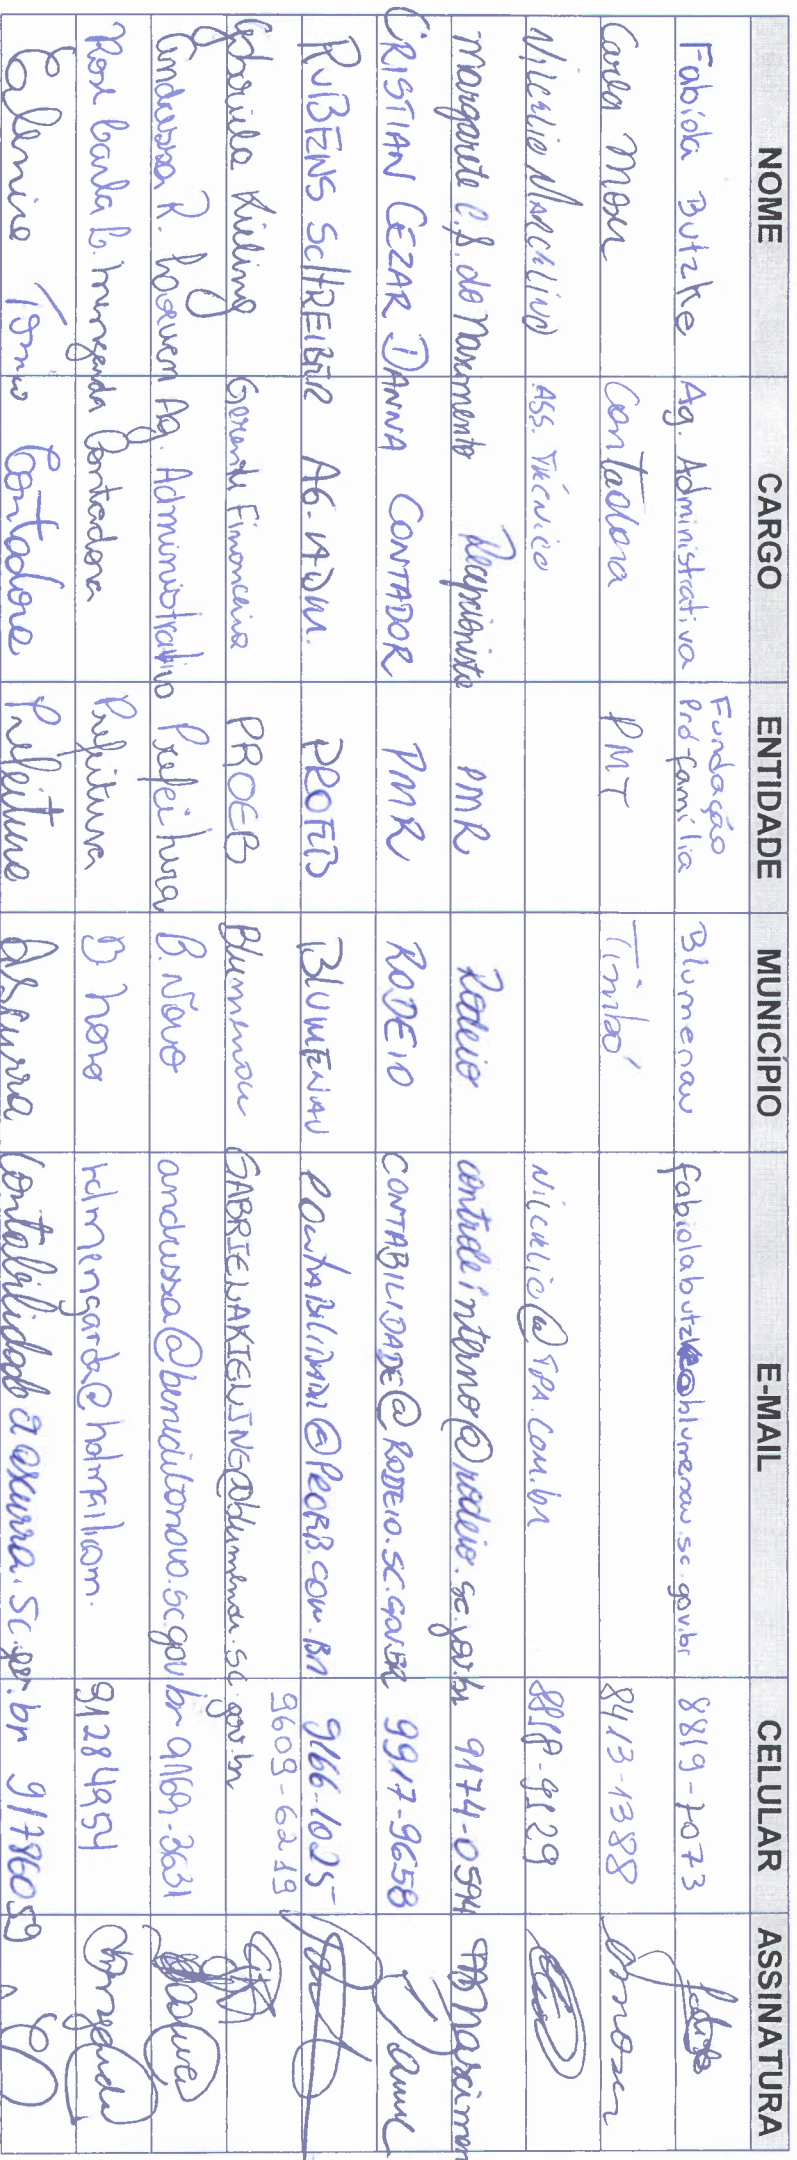 NOME CARGO ENTIDADE MUNICÍPIO E-MAIL CELULAR ASSINATURA
Fabiola Butzke Ag. Administrativa Fundação Pró família Blumenau fabiolabutzke@blumenau.sc.gov.br 8819-7073
Carla Moser Contadora PMT Timbó 8413-1388
Nilcelio Marcelino ASS. TÉCNICO Nilcelio@TPA.com.br
Margarete C. S. do Nascimento Recepcionista PMR Rodeio controleinterno@rodeio.sc.gov.br 9174-0594
CRISTIAN CEZAR DANNA CONTADOR PMR RODEIO CONTABILIDADE@RODEIO.SC.GOV.BR 9917-9658
RUBENS SCHREIBER AG. ADM. PROEB BLUMENAU CONTABILIDADE@PROEB.COM.BR 9166-1025
Gabriela Kieling Gerente Financeira PROEB Blumenau GABRIELAKIELING@blumenau.sc.gov.br 9609-6219
Andressa R. Ag. Administrativo Prefeitura B. Novo andressa@beneditonovo.sc.gov.br 9169-3631
Rose Carla Mengarda Contadora Prefeitura B Novo rdmengarda@hotmail.com. 91284954
Elenise Tomio Contadora Prefeitura Ascurra Contabilidade@ascurra.sc.gov.br 91786059